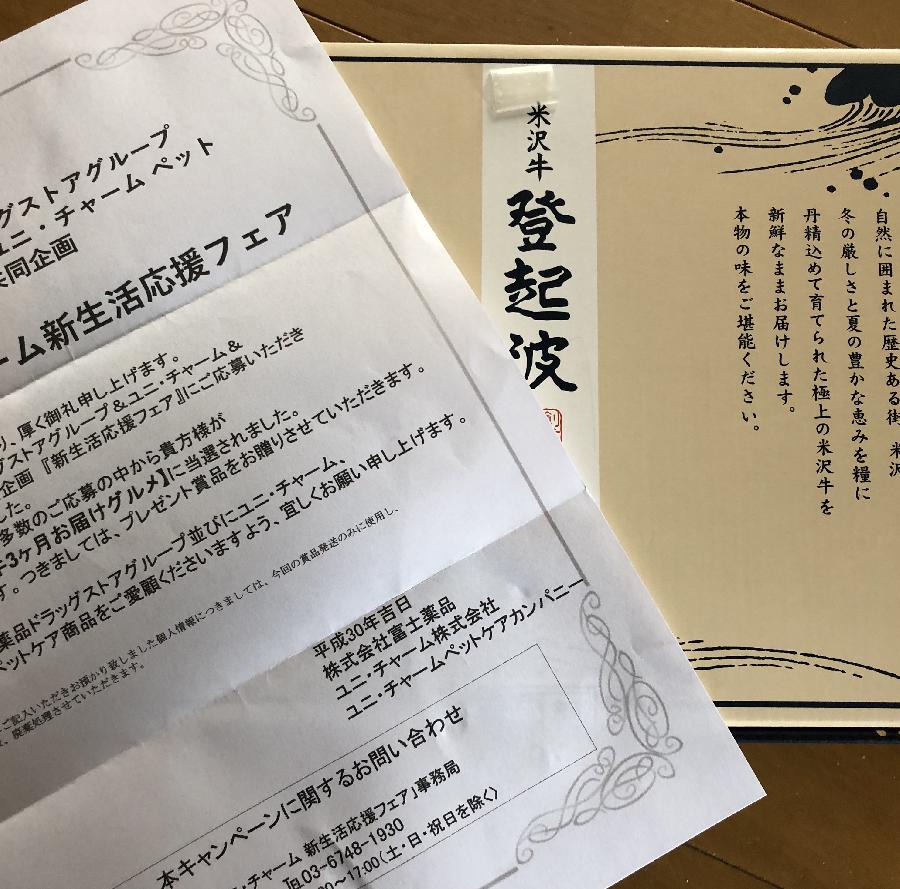 グストアグループ
ユニ・チャーム ペット
共同企画
ーム新生活応援フェア
り、厚く御礼申し上げます。
グストアグループ＆ユニ・チャーム＆
企画『新生活応援フェア』にご応募いただき
した。
多数のご応募の中から貴方様が
3ヶ月お届けグルメ】に当選されました。
す。つきましては、プレゼント賞品をお贈りさせていただきます。
薬品ドラッグストアグループ並びにユニ・チャーム、
ペットケア商品をご愛顧くださいますよう、宜しくお願い申し上げます。
ご記入いただきお預かり致しました個人情報につきましては、今回の賞品発送のみに使用し、
、廃棄処理させていただきます。
平成30年吉日
株式会社富士薬品
ユニ・チャーム株式会社
ユニ・チャームペットケアカンパニー
本キャンペーンに関するお問い合わせ
・チャーム 新生活応援フェア」事務局
℡03-6748-1930
00～17:00（土・日・祝日を除く）
米沢牛
登起波
自然に囲まれた歴史ある街 米沢
冬の厳しさと夏の豊かな恵みを糧に
丹精込めて育てられた極上の米沢牛を
新鮮なままお届けします。
本物の味をご堪能ください。